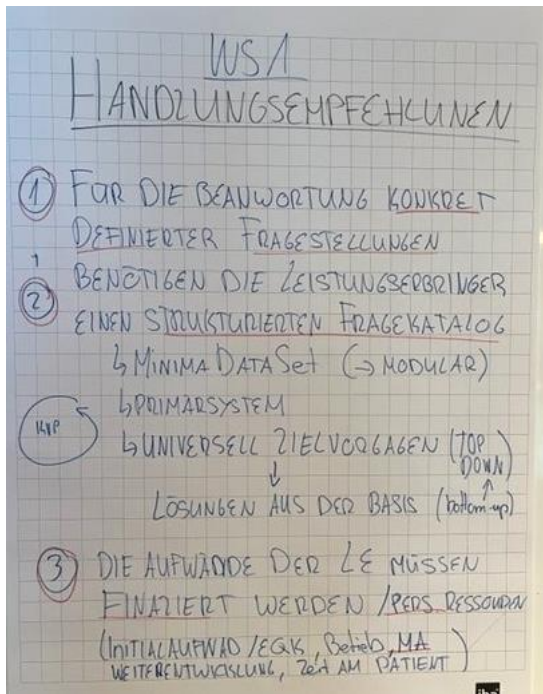 WS1
HANDLUNGSEMPFEHLUNEN
1 FÜR DIE BEANWORTUNG KONKRET
DEFINIERTER FRAGESTELLUNGEN
2 BENÖTIGEN DIE LEISTUNGSERBRINGER
EINEN STRUKTURIERTEN FRAGEKATALOG
↳ MINIMA DATA Set (→ MODULAR)
↳ PRIMÄRSYSTEM
KVP
↳ UNIVERSELL ZIELVORGAGEN (TOP
DOWN)
↓
LÖSUNGEN AUS DER BASIS (bottom-up)
3 DIE AUFWÄNDE DER LE MÜSSEN
FINAZIERT WERDEN / PERS. RESSOURCEN
(INITIALAUFWAD / EGK, Betrieb, MA
WEITERENTWICKLUNG, Zeit AM PATIENT)